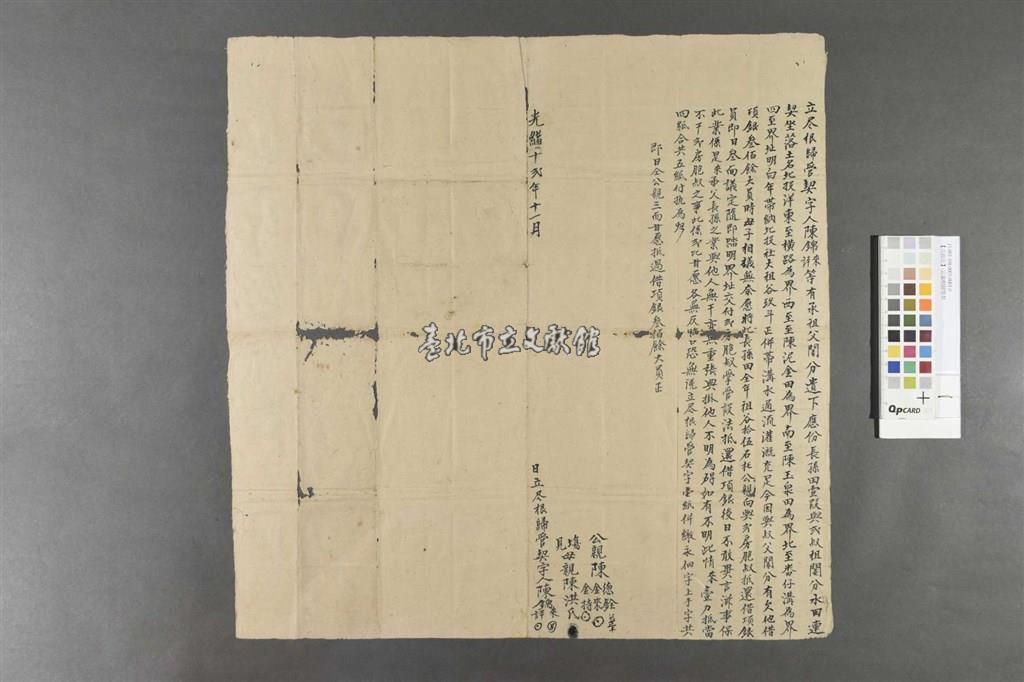 立尽根歸管契字人陳錦來詳等有承祖父鬮分遺下應份長孫田壹段與弍叔祖鬮分水田連
契坐落土名北投洋東至橫路為界西至至陳泥金田為界南至陳玉泉田為界北至番仔溝為界
四至界址明白年帶納北投社大租谷玖斗正併帶溝水通流灌溉充足今因與叔父鬮分有欠他借
項銀叁佰餘大員時母子相議無奈愿將此長孫田全年租谷拾伍石托公親向與弍房胞叔抵還借項銀
員即日叁面議定隨即踏明界址交付弍房胞叔掌管設法抵還借項銀後日不敢異言滋事保
此業係是來承父長孫之業與他人無干亦無重張典掛他人不明為碍如有不明此情來壹力抵當
不干弍房胞叔之事此係弍比甘愿各無反悔口恐無憑立尽根歸管契字壹紙併繳永佃字上手字共
四紙合共五紙付執為炤
即日仝公親三面甘愿抵過借項銀叁佰餘大員正
公親陳德銓
金來
金持
塲見母親陳洪氏
光緒十弍年十一月 日立尽根歸管契字人陳錦來詳
臺北市立文獻館
QPCARD